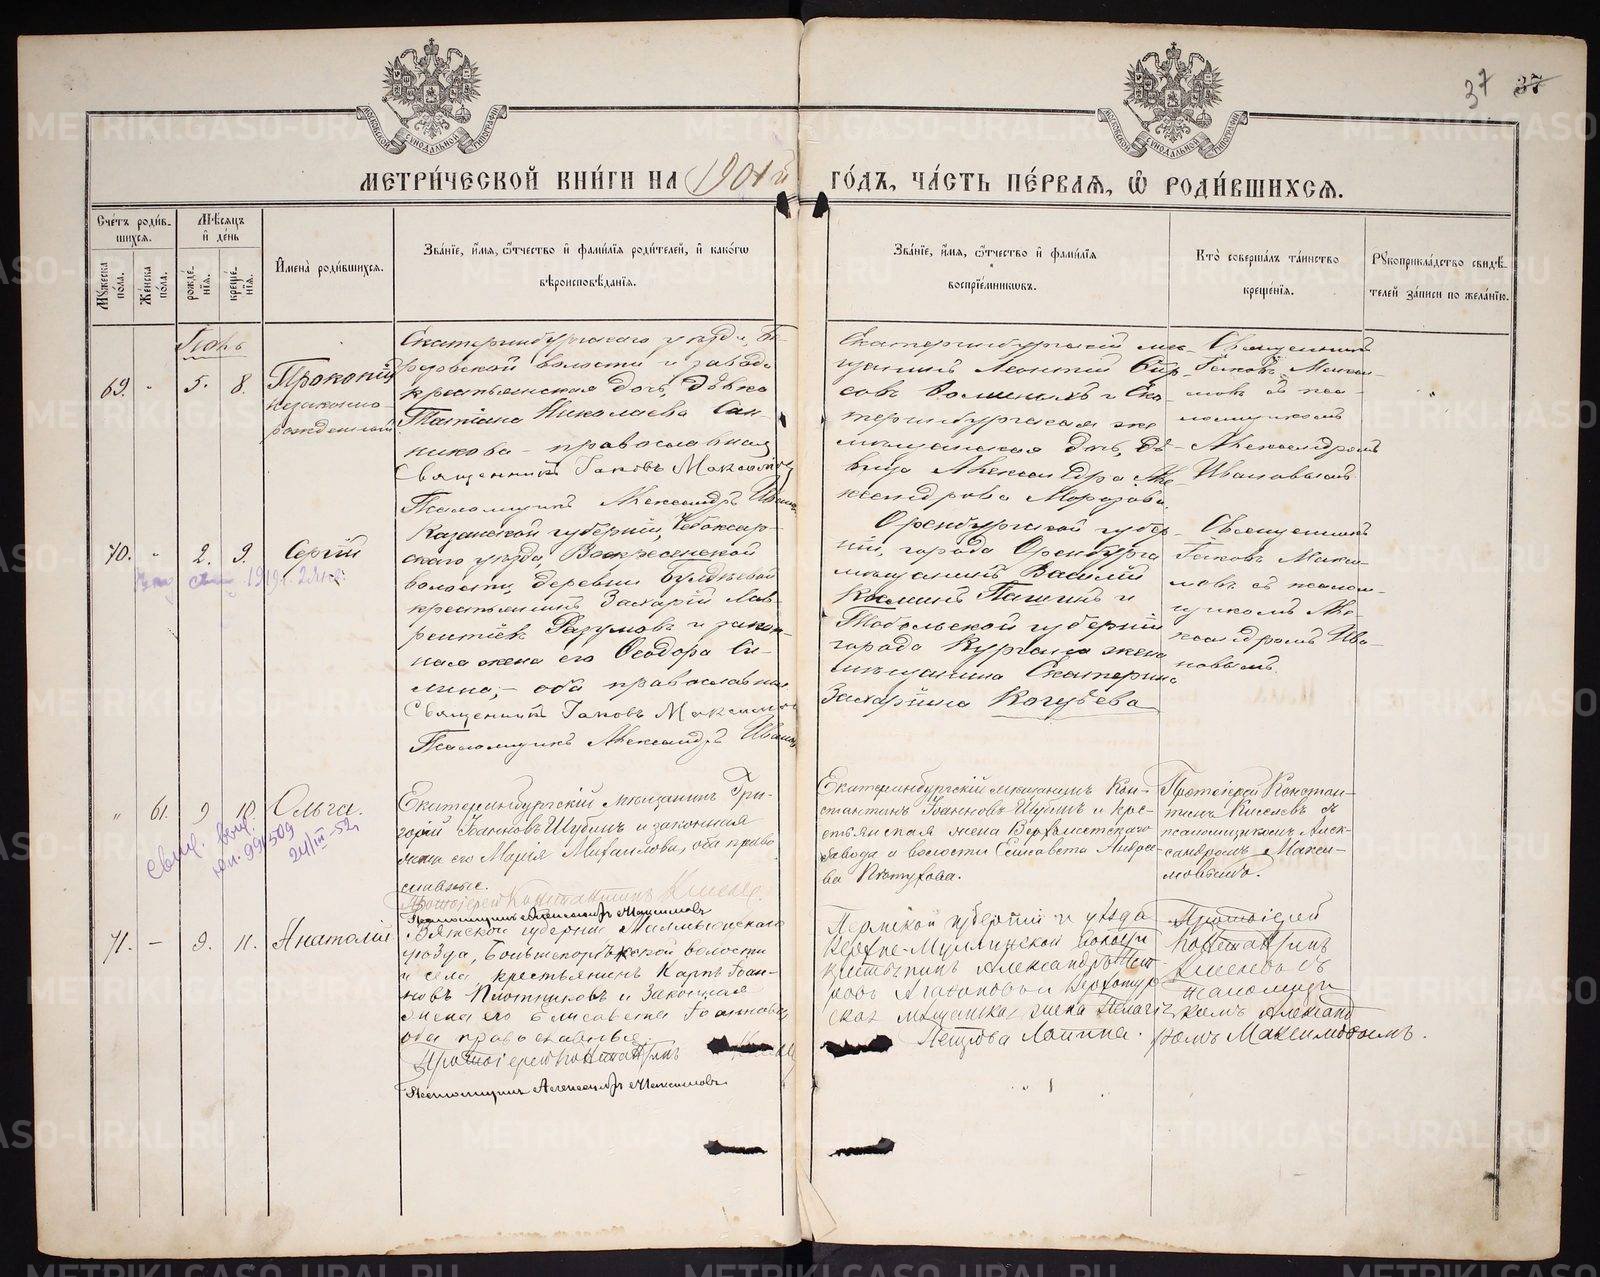 37 37
МЕТРИ́ЧЕСКОЙ КНИ́ГИ НА 1901й ГО́ДЪ, ЧА́СТЬ ПЕ́РВАѦ, Ѡ҆ РОДИ́ВШИХСѦ.
Сче́тъ роди́в-
шихсѧ.
Мꙋ́жеска по́ла.
Же́нска по́ла.
Мѣ́сѧцъ
и҆ де́нь
рожде́-
нїѧ.
креще́-
нїѧ.
И҆мена̀ роди́вшихсѧ.
Зва́нїе, и҆́мѧ, ѻ҆́тчество и҆ фами́лїѧ роди́телей, и҆ како́гѡ
вѣроисповѣ́данїѧ.
Зва́нїе, и҆́мѧ, ѻ҆́тчество и҆ фами́лїѧ
воспрїе́мникѡвъ.
Кто̀ соверша́лъ та́инство
креще́нїѧ.
Рꙋкоприкла́дство свидѣ́-
телей за́писи по жела́нїю.
Іюль
69. " 5. 8.
Прокопій
незаконно-
рожденный
Екатеринбургскаго уѣзда,
волости и завода
крестьянская дочь, дѣвка
Татіана Николаева Сан-
никова - православная
Священникъ Іаковъ Максимовъ
Псаломщикъ Александръ Ивановъ
Екатеринбургскій мѣ-
щанинъ Леонтій
совъ и Ека-
теринбургская же
мѣщанская дочь, дѣ-
вица Александра Але-
ксандрова Морозова.
Священникъ
Іаковъ Макси-
мовъ съ пса-
ломщикомъ
Александромъ
Ивановымъ
70. " 2. 9.
Сергій
1919г.
Казанской губерніи, Чебоксар-
скаго уѣзда, Воскресенской
волости, деревни
крестьянинъ Захарій Лав-
рентіевъ Разумовъ и закон-
ная жена его Ѳеодора Си-
лина, - оба православные
Священникъ Іаковъ Максимовъ
Псаломщикъ Александръ Ивановъ
Оренбургской губер-
ніи, города Оренбурга
мѣщанинъ Василій
Косминъ Пашинъ и
Тобольской губерніи
города Кургана жена
мѣщанина Екатерина
Захаріина Когубева
Священникъ
Іаковъ Макси-
мовъ съ псалом-
щикомъ Але-
ксандромъ Ива-
новымъ
" 61. 9 10.
Ольга.
Свид. выд.
юп. 991509
24/III-52г.
Екатеринбургскій мѣщанинъ Гри-
горій Іоанновъ Шубинъ и законная
жена его Марія Михаилова, оба право-
славные.
Протоіерей Константинъ Кисевъ.
Псаломщикъ Александръ Максимовъ
Екатеринбургскій мѣщанинъ Кон-
стантинъ Іоанновъ Шубинъ и кре-
стьянская жена Верхъисетскаго
завода и волости Елисавета Андрее-
ва Пѣтухова.
Протоіерей Констан-
тинъ Кисевъ съ
псаломщикомъ Алек-
сандромъ Макси-
мовымъ.
71. - 9. 11.
Анатолій
Вятской губерніи Малмыжскаго
уѣзда, волости
и села крестьянинъ Карпъ Іоан-
новъ Плотниковъ и законная
жена его Елисавета Іоаннова
оба православные
Протоіерей Константинъ Кисевъ
Псаломщикъ Александръ Максимовъ
Пермской губерніи и уѣзда
Верхне-Муллинской волости
крестьянинъ Александръ Пет-
ровъ Агафоновъ и Верхотур-
ская мѣщанская жена Пелагія
Петрова Лапина.
Протоіерей
Константинъ
Кисевъ съ
псаломщи-
комъ Александ-
ромъ Максимовымъ.